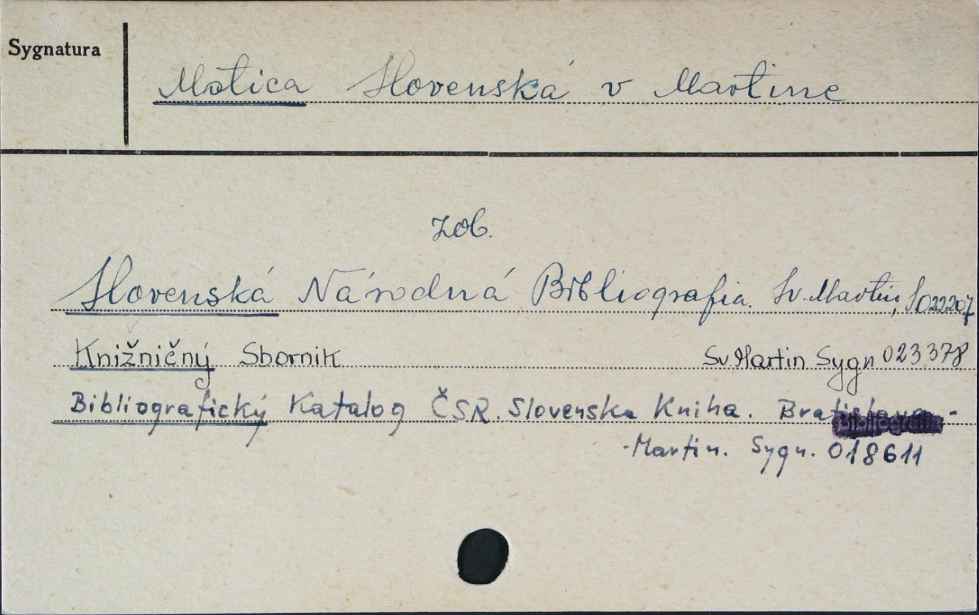 Sygnatura
Matica Slovenská v Martine
zob.
Slovenská Národná Bibliografia. Sv. Martin, S022207
Knižničný Sbornik Sv. Martin Sygn 023378
Bibliografický Katalog ČSR. Slovenska Kniha. Bratislava -
Bibliografia
-Martin. Sygn. 018611